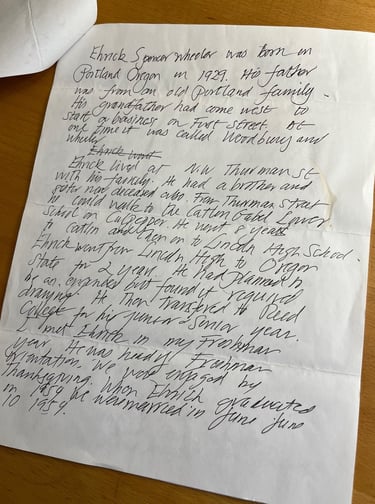 Ehrick Spencer Wheeler was born in
Portland Oregon in 1929. His father
was from an old Portland family.
His grandfather had come west to
start a business on First Street. At
one time it was called Woodbury and
Ehrick went
Ehrick lived at N.W Thurman St
with his family. He had a brother and
sister now deceased who. From Thurman Street
he could walk to the Catlin Gabel Lower
School on Culpepper. He went 8 years
to Catlin and then on to Lincoln High School.
Ehrick went from Lincoln High to Oregon
State for 2 years. He had planned to
be an engineer but found it required
drawing. He then transfered to Reed
College for his junior + Senior year.
I met Ehrick in my Freshman
year. He was head of Freshman
orientation. We were engaged by
Thanksgiving. When Ehrick graduated
in 1954 we were married in June June
10 1954.